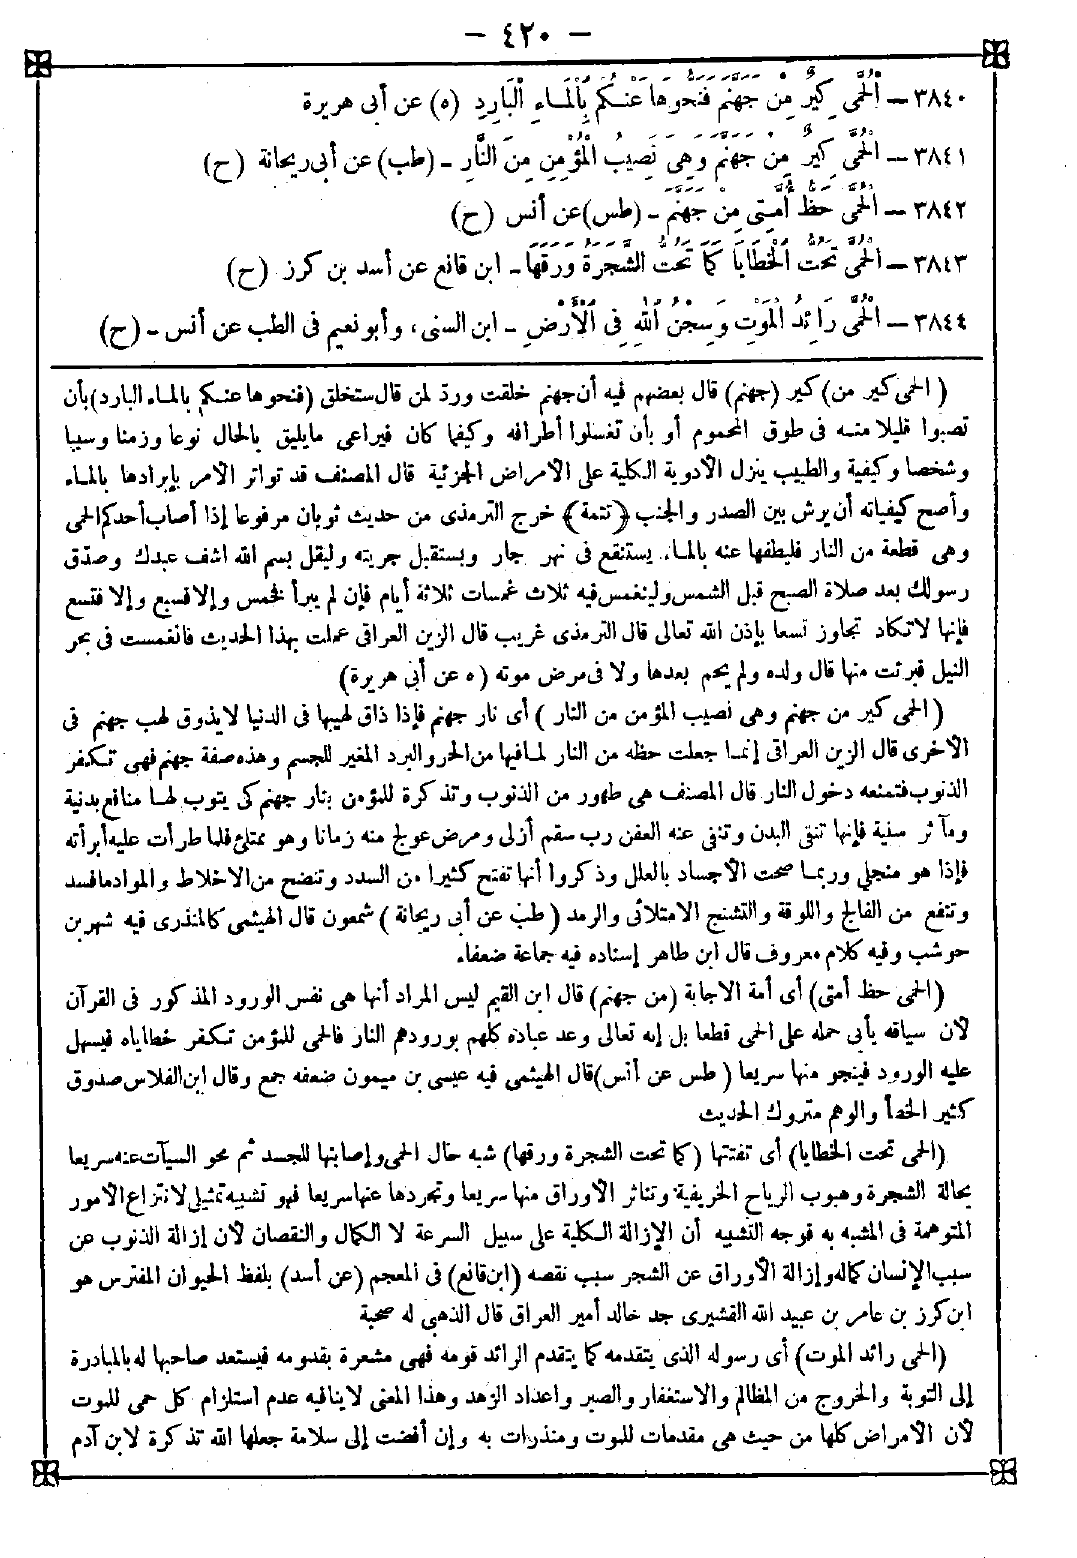 - ٤٢٠ -
٣٨٤٠ - الْحُمَّى كِيرٌ مِنْ جَهَنَّمَ فَنَحُّوهَا عَنْكُمْ بِالْمَاءِ الْبَارِدِ (ه) عن أبى هريرة
٣٨٤١ - الْحُمَّى كِيرٌ مِنْ جَهَنَّمَ وَهِىَ نَصِيبُ الْمُؤْمِنِ مِنَ النَّارِ - (طب) عن أبى ريحانة (ح)
٣٨٤٢ - الْحُمَّى حَظُّ أُمَّتِى مِنْ جَهَنَّمَ - (طس) عن أنس (ح)
٣٨٤٣ - الْحُمَّى تَحُتُّ الْخَطَايَا كَمَا تَحُتُّ الشَّجَرَةُ وَرَقَهَا - ابن قانع عن أسد بن كرز (ح)
٣٨٤٤ - الْحُمَّى رَائِدُ الْمَوْتِ وَسِجْنُ اللهِ فِى الْأَرْضِ - ابن السنى، وأبو نعيم فى الطب عن أنس - (ح)
( الحمى كير من) كير (جهنم) قال بعضهم فيه أن جهنم خلقت ورد لمن قال ستخلق (فنحوها عنكم بالماء البارد) بأن
تصبوا قليلا منه فى طوق المحموم أو بأن تغسلوا أطرافه وكيفما كان فيراعى مايليق بالحال نوعا وزمنا وسببا
وشخصا وكيفية والطبيب ينزل الأدوية الكلية على الأمراض الجزئية قال المصنف قد تواتر الأمر بإبرادها بالماء
وأصح كيفياته أن يرش بين الصدر والجنب ﴿تتمة﴾ خرج الترمذى من حديث ثوبان مرفوعا إذا أصاب أحدكم الحمى
وهى قطعة من النار فليطفها عنه بالماء يستنقع فى نهر جار ويستقبل جريته وليقل بسم الله اشف عبدك وصدّق
رسولك بعد صلاة الصبح قبل الشمس ولينغمس فيه ثلاث غمسات ثلاثة أيام فإن لم يبرأ فخمس وإلا فسبع وإلا فتسع
فإنها لاتكاد تجاوز تسعا بإذن الله تعالى قال الترمذى غريب قال الزين العراقى عملت بهذا الحديث فانغمست فى بحر
النيل فبرئت منها قال ولده ولم يحم بعدها ولا فى مرض موته (ه عن أبى هريرة)
( الحمى كير من جهنم وهى نصيب المؤمن من النار ) أى نار جهنم فإذا ذاق لهيبها فى الدنيا لايذوق لهب جهنم فى
الأخرى قال الزين العراقى إنما جعلت حظه من النار لما فيها من الحر والبرد المغير للجسم وهذه صفة جهنم فهى تكفر
الذنوب فتمنعه دخول النار قال المصنف هى طهور من الذنوب وتذكرة للمؤمن بنار جهنم كى يتوب لها منافع بدنية
ومآثر سنية فإنها تنقى البدن وتنفى عنه العفن رب سقم أزلى ومرض عولج منه زمانا وهو ممتلئ فلما طرأت عليه أبرأته
فإذا هو منجلى وربما صحت الأجساد بالعلل وذكروا أنها تفتح كثيرا من السدد وتنضج من الأخلاط والمواد مافسد
وتنفع من الفالج واللوقة والتشنج الامتلائى والرمد ( طب عن أبى ريحانة ) شمعون قال الهيثمى كالمنذرى فيه شهر بن
حوشب وفيه كلام معروف قال ابن طاهر إسناده فيه جماعة ضعفاء
( الحمى حظ أمتى) أى أمة الإجابة (من جهنم) قال ابن القيم ليس المراد أنها هى نفس الورود المذكور فى القرآن
لأن سياقه يأبى حمله على الحمى قطعا بل إنه تعالى وعد عباده كلهم بورودهم النار فالحمى للمؤمن تكفر خطاياه فيسهل
عليه الورود فينجو منها سريعا ( طس عن أنس) قال الهيثمى فيه عيسى بن ميمون ضعفه جمع وقال ابن الفلاس صدوق
كثير الخطأ والوهم متروك الحديث
(الحمى تحت الخطايا) أى تفتتها (كما تحت الشجرة ورقها) شبه حال الحمى وإصابتها للجسد ثم محو السيآت عنه سريعا
بحالة الشجرة وهبوب الرياح الخريفية وتناثر الأوراق منها سريعا وتجردها عنها سريعا فهو تشبيه تمثيلى لانتزاع الأمور
المتوهمة فى المشبه به فوجه التشبيه أن الإزالة الكلية على سبيل السرعة لا الكمال والنقصان لأن إزالة الذنوب عن
سبب الإنسان كماله وإزالة الأوراق عن الشجر سبب نقصه (ابن قانع) فى المعجم (عن أسد) بلفظ الحيوان المفترس هو
ابن كرز بن عامر بن عبيد الله القشيرى جد خالد أمير العراق قال الذهبى له صحبة
(الحمى رائد الموت) أى رسوله الذى يتقدمه كما يتقدم الرائد قومه فهى مشعرة بقدومه فيستعد صاحبها له بالمبادرة
إلى التوبة والخروج من المظالم والاستغفار والصبر واعداد الزهد وهذا المعنى لاينافيه عدم استلزام كل حمى للموت
لأن الأمراض كلها من حيث هى مقدمات للموت ومنذرات به وإن أفضت إلى سلامة جعلها الله تذكرة لابن آدم